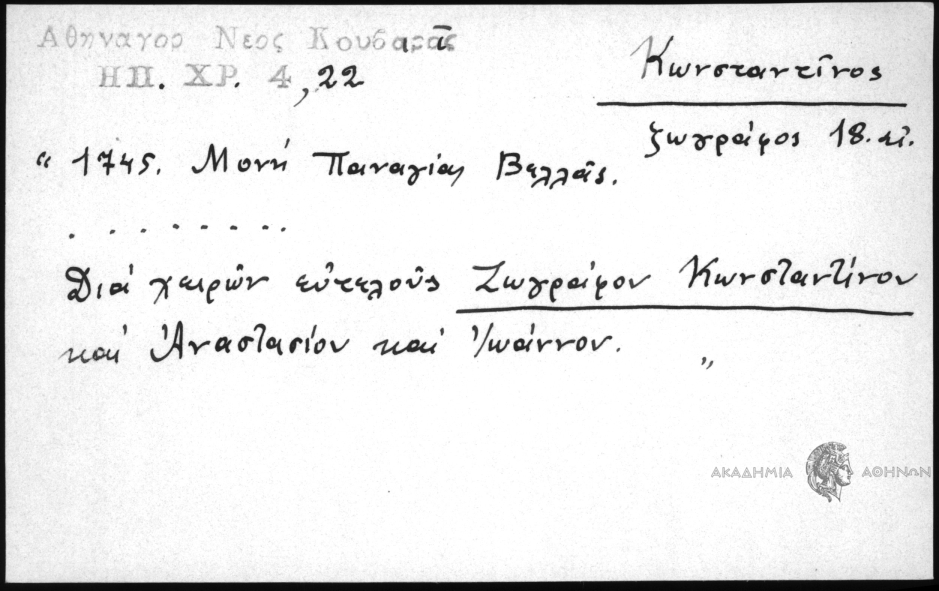 Αθηναγορ Νεος Κουβαρᾶς
ΗΠ. ΧΡ. 4, 22
Κωνσταντῖνος
ζωγράφος 18. αἰ.
“ 1745. Μονή Παναγίας Βελλᾶς.
. . . . . . . .
Διά χειρῶν εὐτελοῦς Ζωγράφου Κωνσταντίνου
καί Ἀναστασίου καί Ἰωάννου. ”
ΑΚΑΔΗΜΙΑ ΑΘΗΝΩΝ